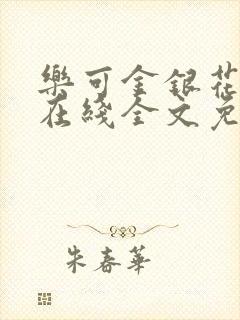 樂可金銀花
在綫全文免
朱春華